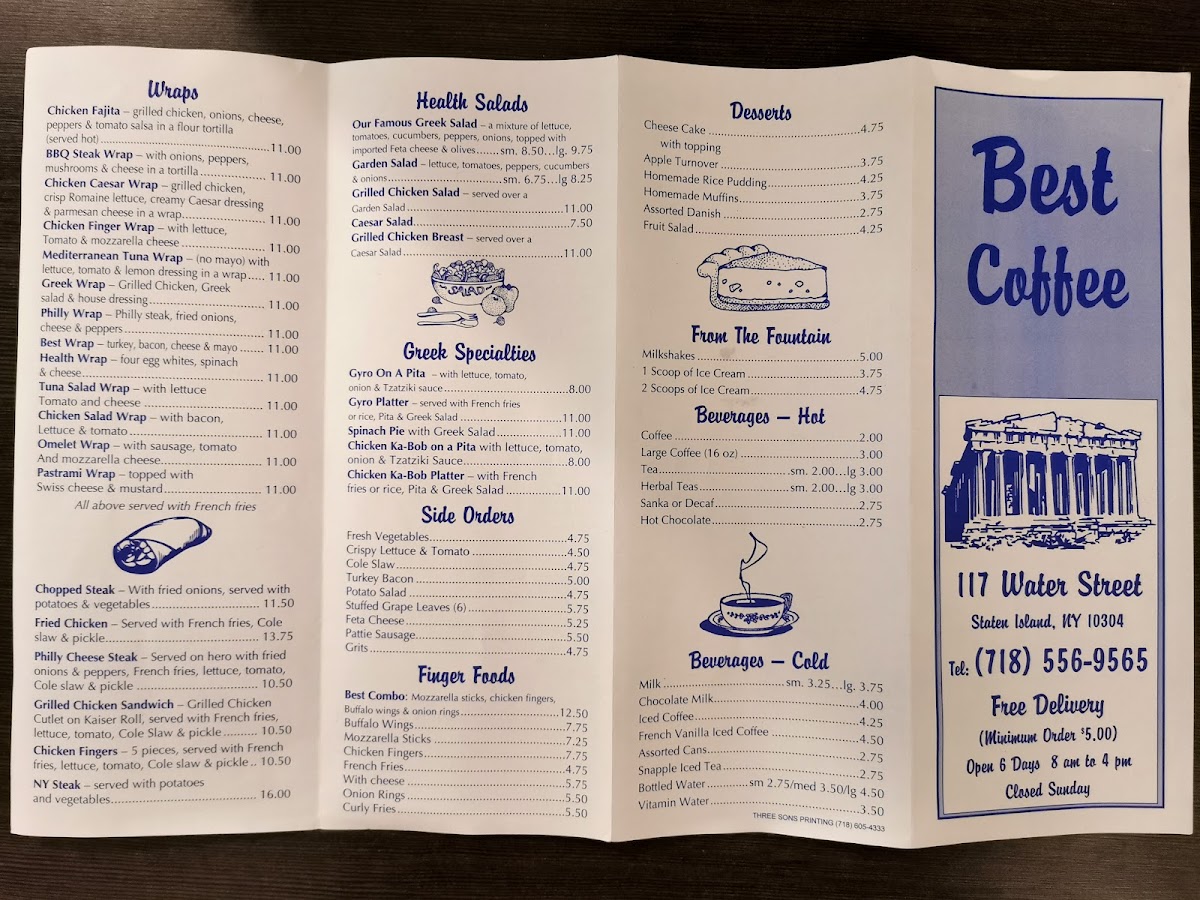 Wraps
Chicken Fajita – grilled chicken, onions, cheese,
peppers & tomato salsa in a flour tortilla
(served hot)..........11.00
BBQ Steak Wrap – with onions, peppers,
mushrooms & cheese in a tortilla..........11.00
Chicken Caesar Wrap – grilled chicken,
crisp Romaine lettuce, creamy Caesar dressing
& parmesan cheese in a wrap..........11.00
Chicken Finger Wrap – with lettuce,
Tomato & mozzarella cheese..........11.00
Mediterranean Tuna Wrap – (no mayo) with
lettuce, tomato & lemon dressing in a wrap.....11.00
Greek Wrap – Grilled Chicken, Greek
salad & house dressing..........11.00
Philly Wrap – Philly steak, fried onions,
cheese & peppers..........11.00
Best Wrap – turkey, bacon, cheese & mayo.......11.00
Health Wrap – four egg whites, spinach
& cheese..........11.00
Tuna Salad Wrap – with lettuce
Tomato and cheese..........11.00
Chicken Salad Wrap – with bacon,
Lettuce & tomato..........11.00
Omelet Wrap – with sausage, tomato
And mozzarella cheese..........11.00
Pastrami Wrap – topped with
Swiss cheese & mustard..........11.00
All above served with French fries
Chopped Steak – With fried onions, served with
potatoes & vegetables..........11.50
Fried Chicken – Served with French fries, Cole
slaw & pickle..........13.75
Philly Cheese Steak – Served on hero with fried
onions & peppers, French fries, lettuce, tomato,
Cole slaw & pickle..........10.50
Grilled Chicken Sandwich – Grilled Chicken
Cutlet on Kaiser Roll, served with French fries,
lettuce, tomato, Cole Slaw & pickle..........10.50
Chicken Fingers – 5 pieces, served with French
fries, lettuce, tomato, Cole slaw & pickle..10.50
NY Steak – served with potatoes
and vegetables..........16.00
Health Salads
Our Famous Greek Salad – a mixture of lettuce,
tomatoes, cucumbers, peppers, onions, topped with
imported Feta cheese & olives......sm. 8.50...lg. 9.75
Garden Salad – lettuce, tomatoes, peppers, cucumbers
& onions..........sm. 6.75...lg 8.25
Grilled Chicken Salad – served over a
Garden Salad..........11.00
Caesar Salad..........7.50
Grilled Chicken Breast – served over a
Caesar Salad..........11.00
SALAD
Greek Specialties
Gyro On A Pita – with lettuce, tomato,
onion & Tzatziki sauce..........8.00
Gyro Platter – served with French fries
or rice, Pita & Greek Salad..........11.00
Spinach Pie with Greek Salad..........11.00
Chicken Ka-Bob on a Pita with lettuce, tomato,
onion & Tzatziki Sauce..........8.00
Chicken Ka-Bob Platter – with French
fries or rice, Pita & Greek Salad..........11.00
Side Orders
Fresh Vegetables..........4.75
Crispy Lettuce & Tomato..........4.50
Cole Slaw..........4.75
Turkey Bacon..........5.00
Potato Salad..........4.75
Stuffed Grape Leaves (6)..........5.75
Feta Cheese..........5.25
Pattie Sausage..........5.50
Grits..........4.75
Finger Foods
Best Combo: Mozzarella sticks, chicken fingers,
Buffalo wings & onion rings..........12.50
Buffalo Wings..........7.75
Mozzarella Sticks..........7.25
Chicken Fingers..........7.75
French Fries..........4.75
With cheese..........5.75
Onion Rings..........5.50
Curly Fries..........5.50
Desserts
Cheese Cake..........4.75
with topping
Apple Turnover..........3.75
Homemade Rice Pudding..........4.25
Homemade Muffins..........3.75
Assorted Danish..........2.75
Fruit Salad..........4.25
From The Fountain
Milkshakes..........5.00
1 Scoop of Ice Cream..........3.75
2 Scoops of Ice Cream..........4.75
Beverages – Hot
Coffee..........2.00
Large Coffee (16 oz)..........3.00
Tea..........sm. 2.00...lg 3.00
Herbal Teas..........sm. 2.00...lg 3.00
Sanka or Decaf..........2.75
Hot Chocolate..........2.75
Beverages – Cold
Milk..........sm. 3.25...lg. 3.75
Chocolate Milk..........4.00
Iced Coffee..........4.25
French Vanilla Iced Coffee..........4.50
Assorted Cans..........2.75
Snapple Iced Tea..........2.75
Bottled Water..........sm 2.75/med 3.50/lg 4.50
Vitamin Water..........3.50
THREE SONS PRINTING (718) 605-4333
Best
Coffee
117 Water Street
Staten Island, NY 10304
Tel: (718) 556-9565
Free Delivery
(Minimum Order $5.00)
Open 6 Days 8 am to 4 pm
Closed Sunday